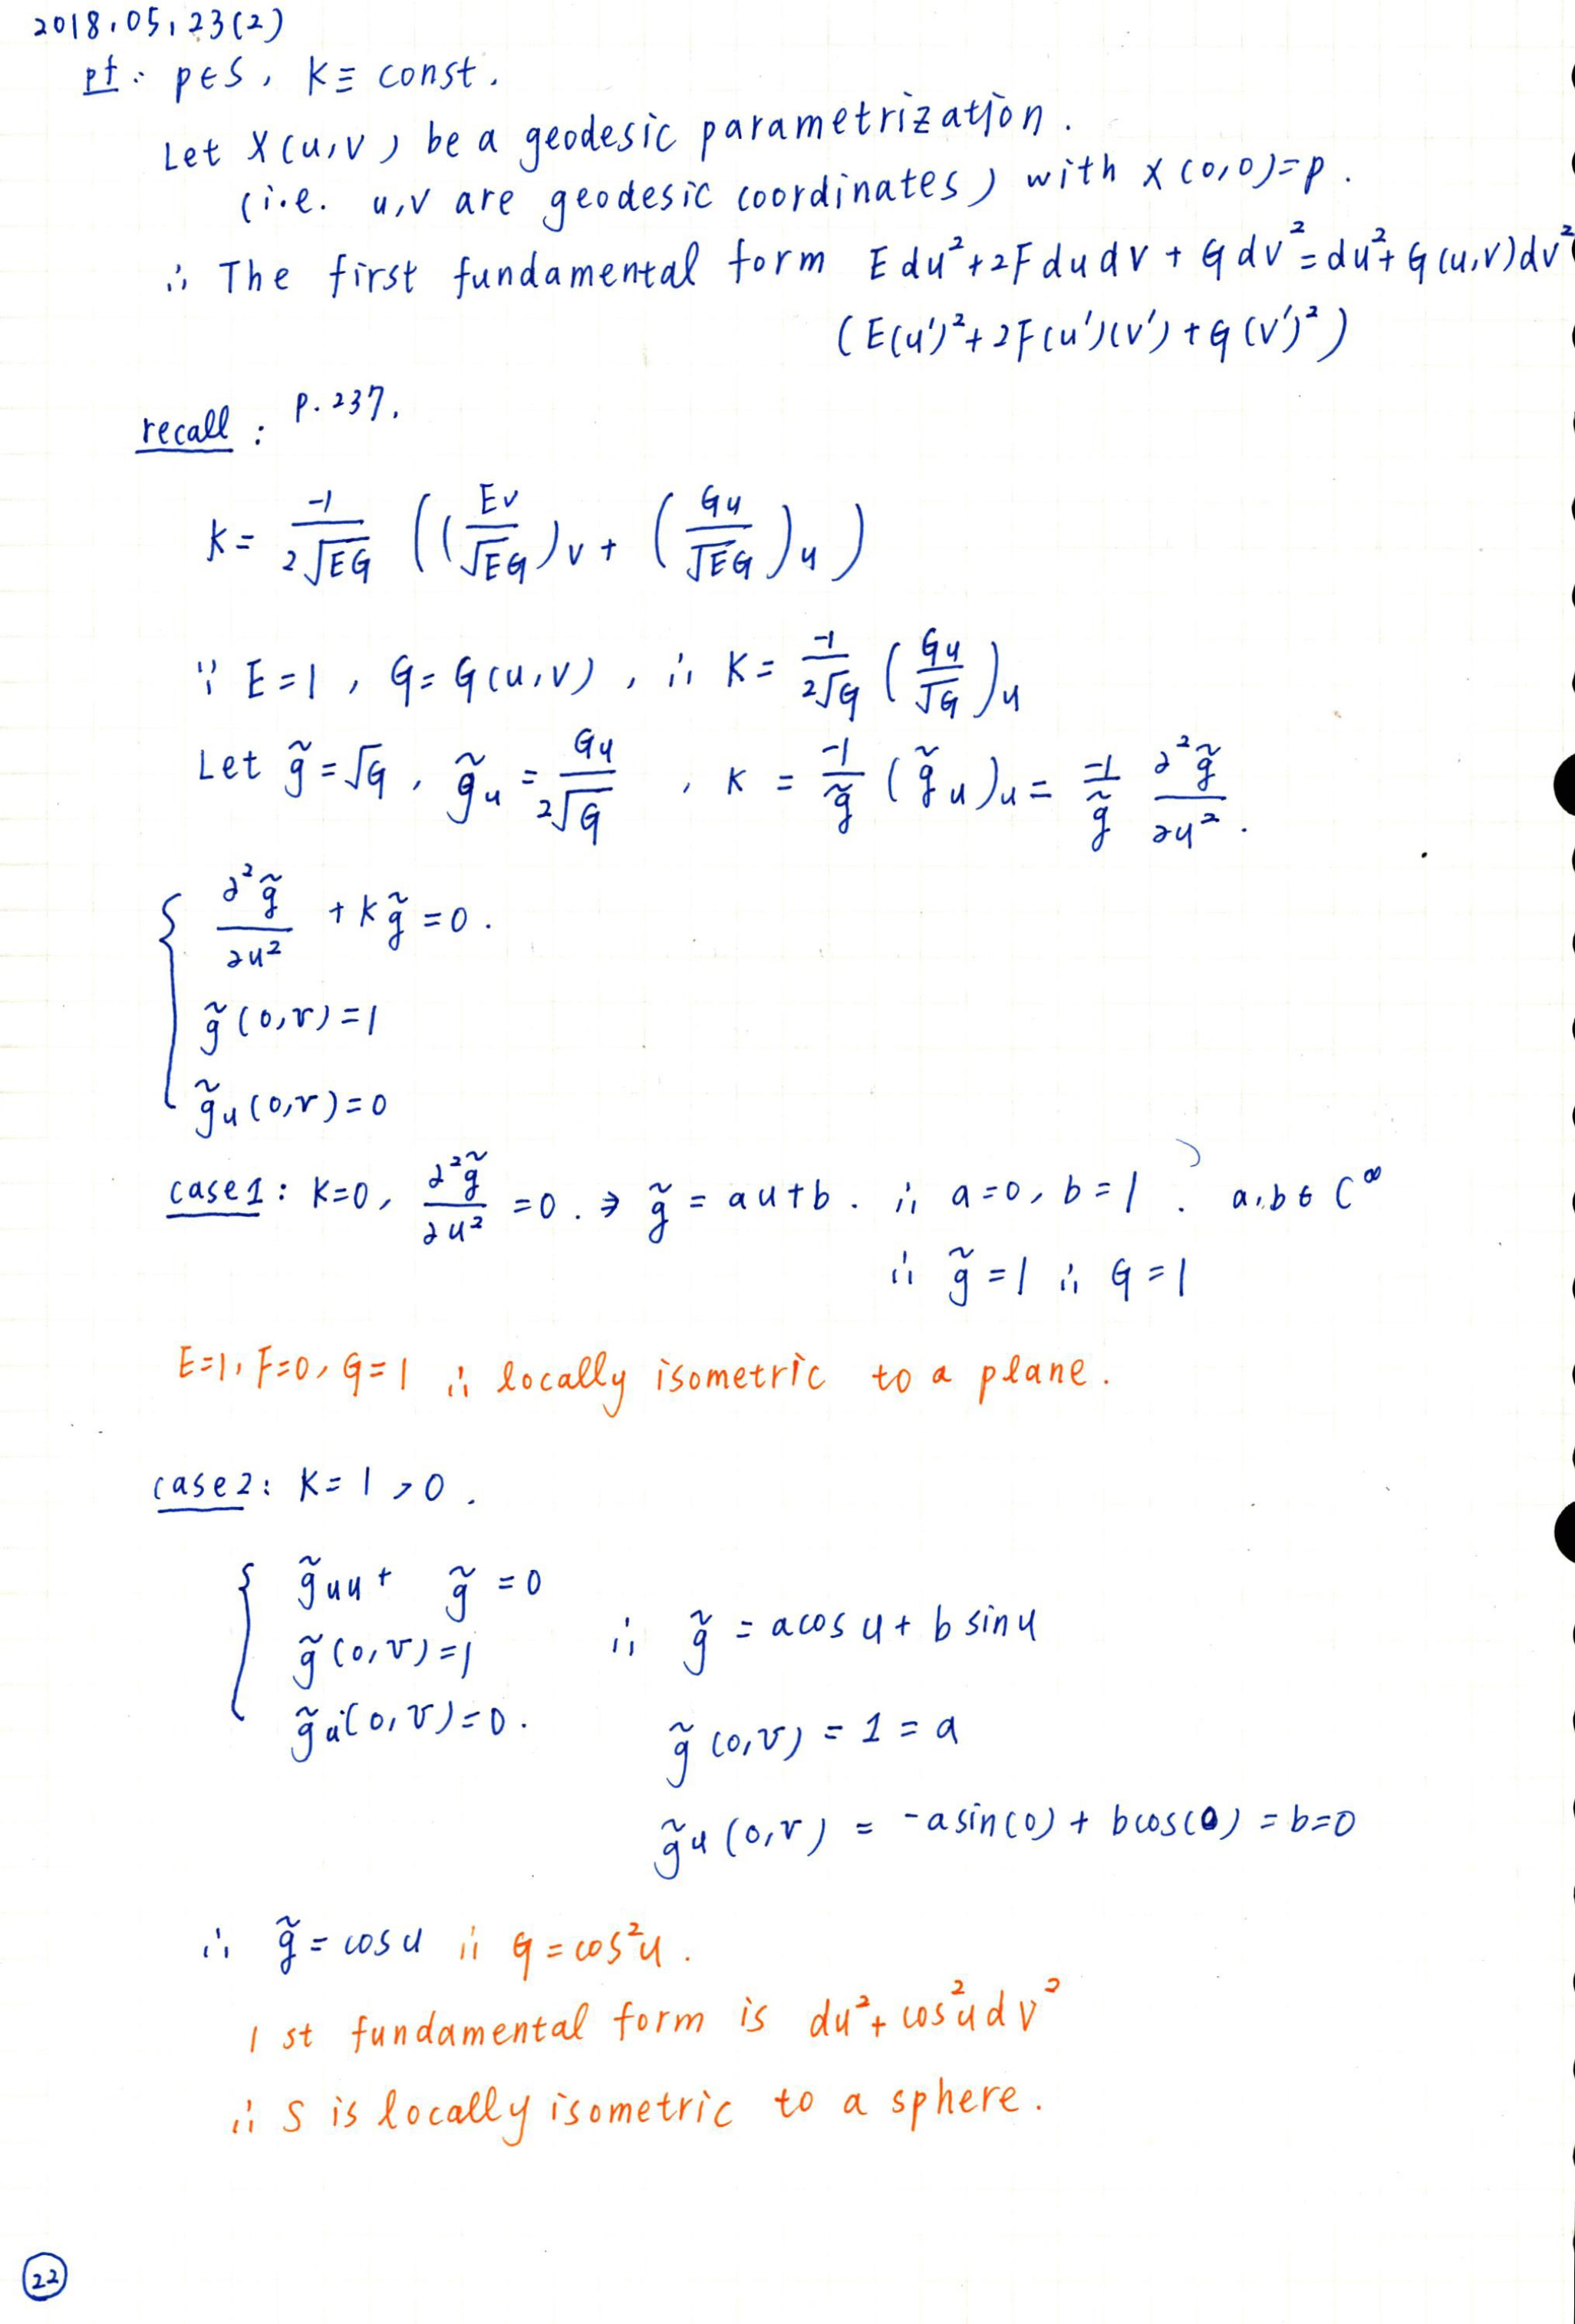 2018.05.23(2)
pf: p∈S, K≡ const.
Let X(u,v) be a geodesic parametrization.
(i.e. u,v are geodesic coordinates) with X(0,0)=p.
∴ The first fundamental form Edu²+2Fdudv+Gdv²=du²+G(u,v)dv²
(E(u')²+2F(u')(v')+G(v')²)
recall: P.237.
K= -1/(2√EG) ((Ev/√EG)v + (Gu/√EG)u)
∵ E=1, G=G(u,v), ∴ K= -1/(2√G) (Gu/√G)u
Let g̃=√G, g̃u = Gu/(2√G), K = -1/g̃ (g̃u)u = -1/g̃ ∂²g̃/∂u².
{ ∂²g̃/∂u² + Kg̃=0.
g̃(0,v)=1
g̃u(0,v)=0
case1: K=0, ∂²g̃/∂u² =0. ⇒ g̃ = au+b. ∴ a=0, b=1. a,b∈C^∞
∴ g̃=1 ∴ G=1
E=1, F=0, G=1 ∴ locally isometric to a plane.
case2: K=1>0.
{ g̃uu+ g̃=0
g̃(0,v)=1 ∴ g̃ = acosu+bsinu
g̃u(0,v)=0. g̃(0,v)=1=a
g̃u(0,v) = -asin(0)+bcos(0)=b=0
∴ g̃=cosu ∴ G=cos²u.
1st fundamental form is du²+cos²udv²
∴ S is locally isometric to a sphere.
22